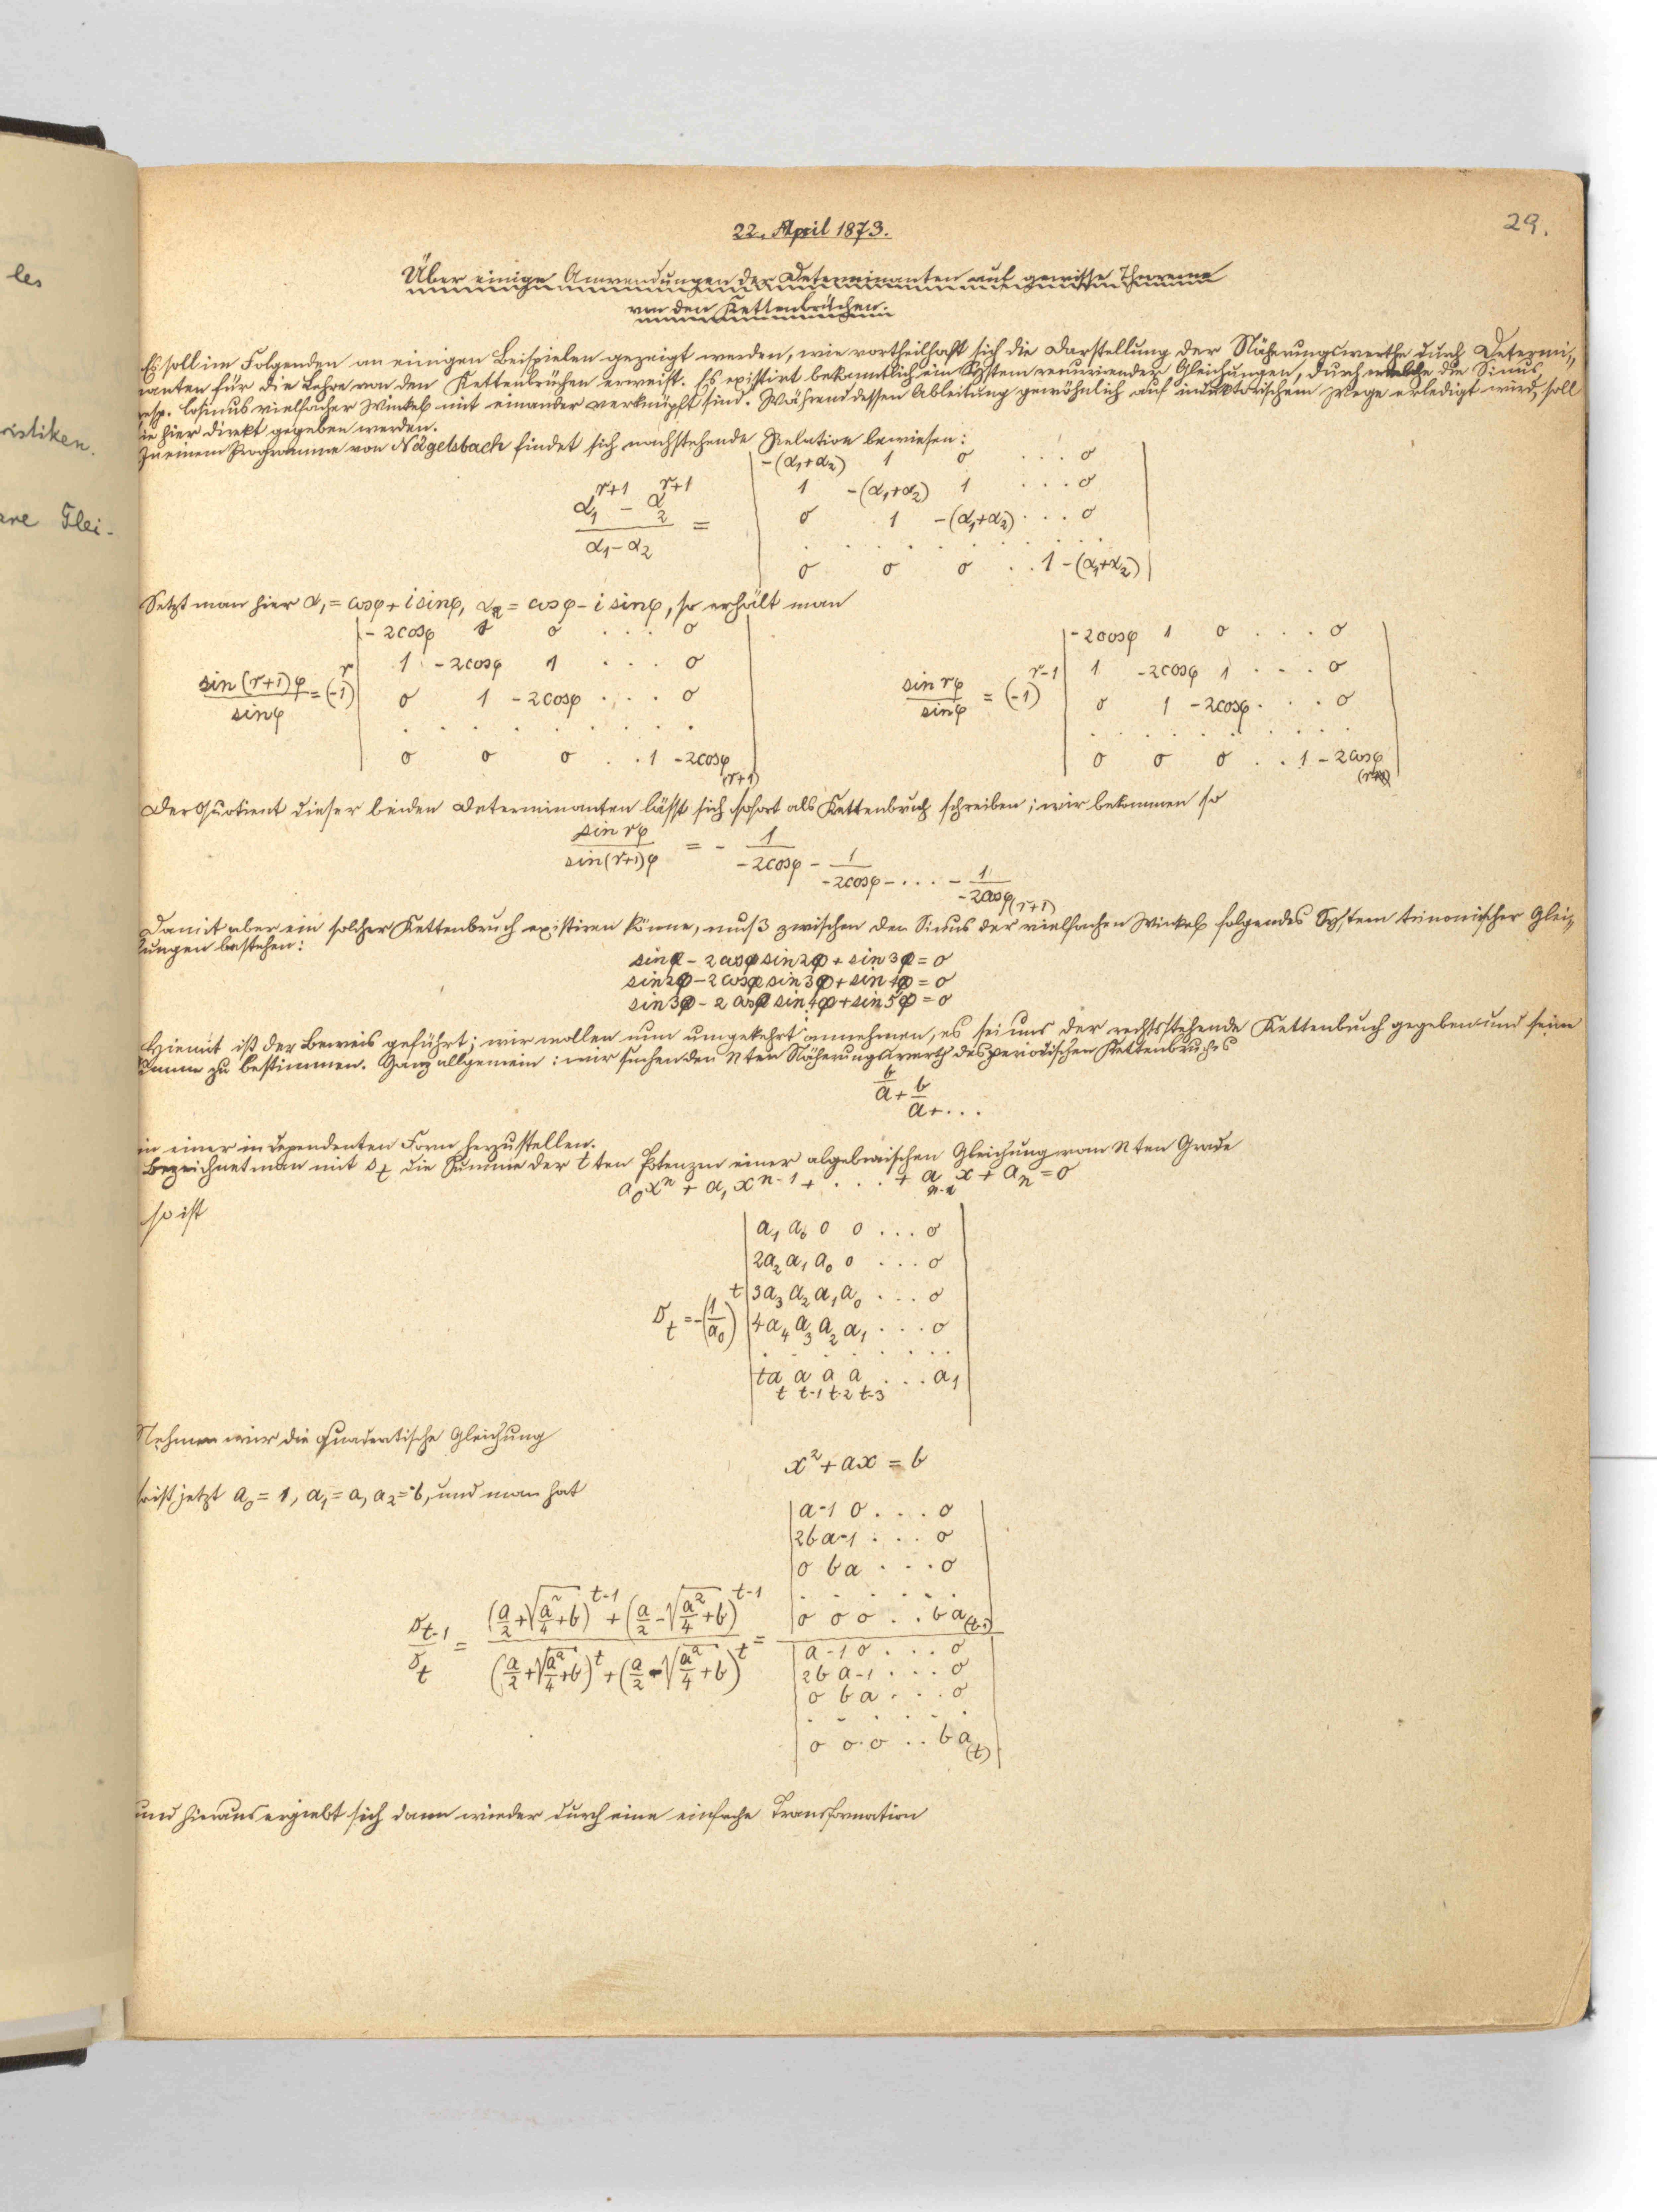 les
ristiken.
are Glei-
29.
22. April 1873.
Über einige Anwendungen der Determinanten auf gewisse Theoreme
von den Kettenbrüchen.
Es soll im Folgenden an einigen Beispielen gezeigt werden, wie vortheilhaft sich die Darstellung der Näherungswerthe durch Determi-
nanten für die Lehre von den Kettenbrüchen erweist. Es existirt bekanntlich ein System recurrirender Gleichungen, durch welche die Sinus
resp. Cosinus vielfacher Winkel mit einander verknüpft sind. Während dessen Ableitung gewöhnlich auf induktorischem Wege erledigt wird, soll
sie hier direkt gegeben werden.
In einem Programme von Nägelsbach findet sich nachstehende Relation bewiesen:
-(α1+α2) 1 0 . . . 0
1 -(α1+α2) 1 . . . 0
(α1^(r+1) - α2^(r+1))/(α1-α2) =
0 1 -(α1+α2) . . . 0
. . . . . . . .
0 0 0 . . 1 -(α1+α2)
Setzt man hier α1 = cosφ + i sinφ, α2 = cosφ - i sinφ, so erhält man
-2cosφ 1 0 . . . 0
1 -2cosφ 1 . . . 0
sin(r+1)φ/sinφ = (-1)^r
0 1 -2cosφ . . . 0
. . . . . . . .
0 0 0 . . 1 -2cosφ (r+1)
-2cosφ 1 0 . . . 0
1 -2cosφ 1 . . . 0
sin rφ/sinφ = (-1)^(r-1)
0 1 -2cosφ . . . 0
. . . . . . . .
0 0 0 . . 1 -2cosφ
Der Quotient dieser beiden Determinanten lässt sich sofort als Kettenbruch schreiben; wir bekommen so
sin rφ/sin(r+1)φ = - 1/-2cosφ - 1/-2cosφ - . . . - 1/-2cosφ (r+1)
Damit aber ein solcher Kettenbruch existiren könne, muß zwischen den Sinus der vielfachen Winkel folgendes System trinomischer Glei-
chungen bestehen:
sinφ - 2cosφ sin2φ + sin3φ = 0
sin2φ - 2cosφ sin3φ + sin4φ = 0
sin3φ - 2cosφ sin4φ + sin5φ = 0
Hiemit ist der Beweis geführt; wir wollen nun umgekehrt annehmen, es sei uns der rechtsstehende Kettenbruch gegeben und seine
Summe zu bestimmen. Ganz allgemein: wir suchen den nten Näherungswerth des periodischen Kettenbruches
b/a + b/a + . . .
in einer independenten Form herzustellen.
Bezeichnet man mit st die Summe der tten Potenzen einer algebraischen Gleichung vom nten Grade
a0x^n + a1x^(n-1) + . . . + a(n-1)x + an = 0
so ist
a1 a0 0 0 . . . 0
2a2 a1 a0 0 . . . 0
3a3 a2 a1 a0 . . . 0
st = (-1/a0)^t
4a4 a3 a2 a1 . . . 0
. . . . . . . .
ta_t a_t-1 a_t-2 a_t-3 . . . a1
Nehmen wir die quadratische Gleichung
x² + ax = b
so ist jetzt a0 = 1, a1 = a, a2 = -b, und man hat
a -1 0 . . . 0
2b a -1 . . . 0
0 b a . . . 0
. . . . . .
0 0 0 . . b a (t-1)
s_t-1/s_t = ((a/2 + √(a²/4 + b))^(t-1) + (a/2 - √(a²/4 + b))^(t-1)) / ((a/2 + √(a²/4 + b))^t + (a/2 - √(a²/4 + b))^t) =
a -1 0 . . . 0
2b a -1 . . . 0
0 b a . . . 0
. . . . . .
0 0 0 . . b a (t)
und hieraus ergiebt sich dann wieder durch eine einfache Transformation